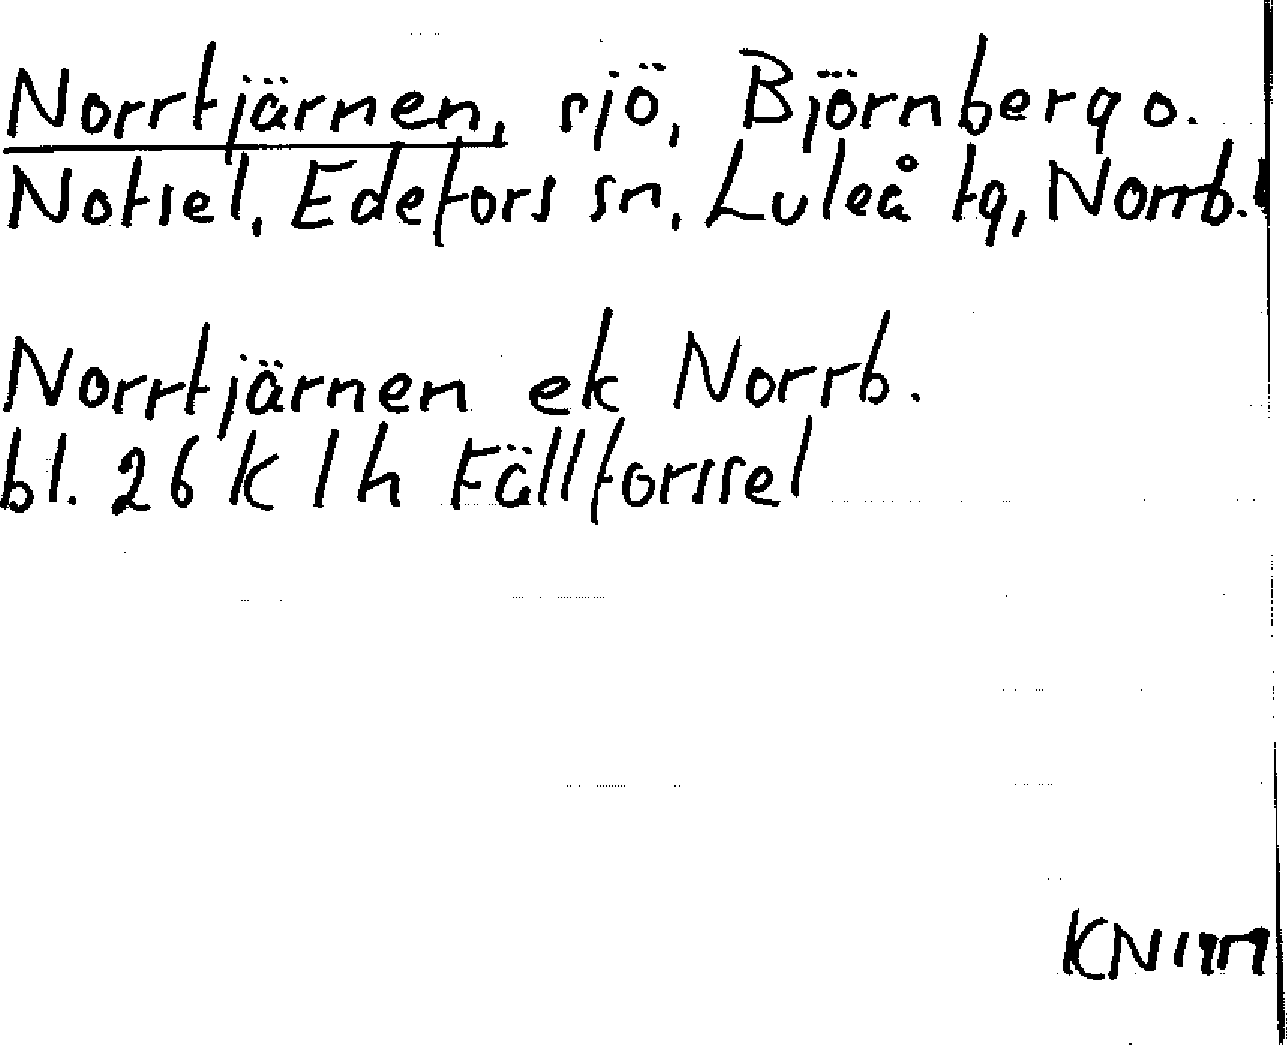 Norrtjärnen, sjö, Björnberg o.
Notsel, Edefors sn, Luleå tg, Norrb.
Norrtjärnen ek Norrb.
bl. 26 K 1 h Fällforssel
KN